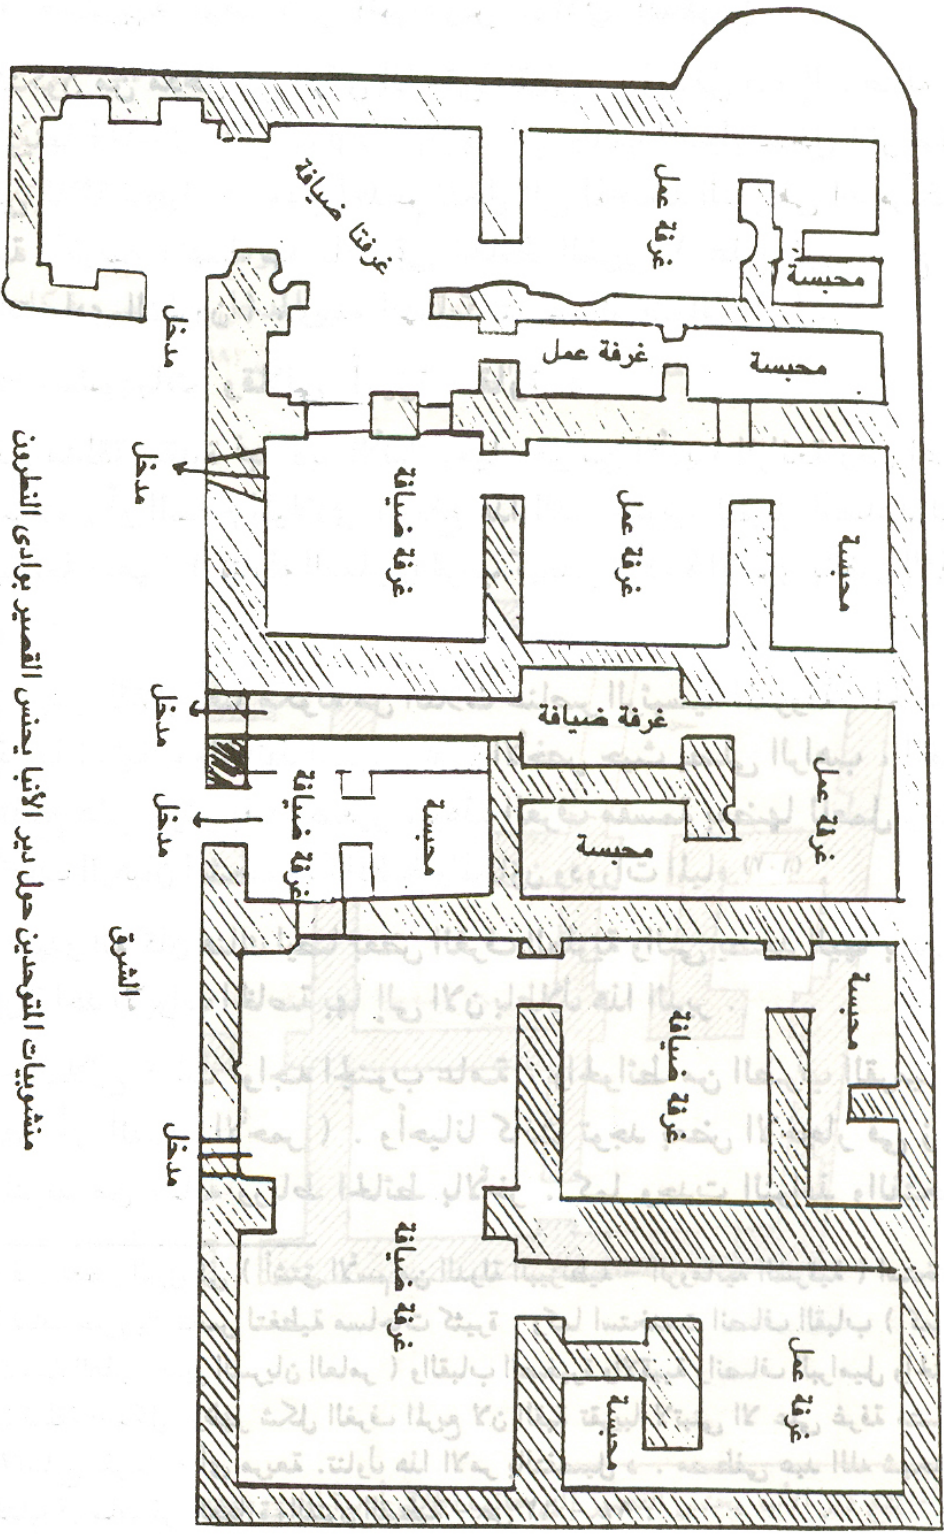 غرفتا ضيافة
غرفة عمل
محبسة
مدخل
غرفة عمل
محبسة
مدخل
غرفة ضيافة
غرفة عمل
محبسة
مدخل
غرفة ضيافة
غرفة عمل
محبسة
مدخل
غرفة ضيافة
محبسة
الشرق
محبسة
غرفة ضيافة
مدخل
غرفة ضيافة
غرفة عمل
محبسة
منشوبيات المتوحدين حول دير الأنبا يحنس القصير بوادى النطرون